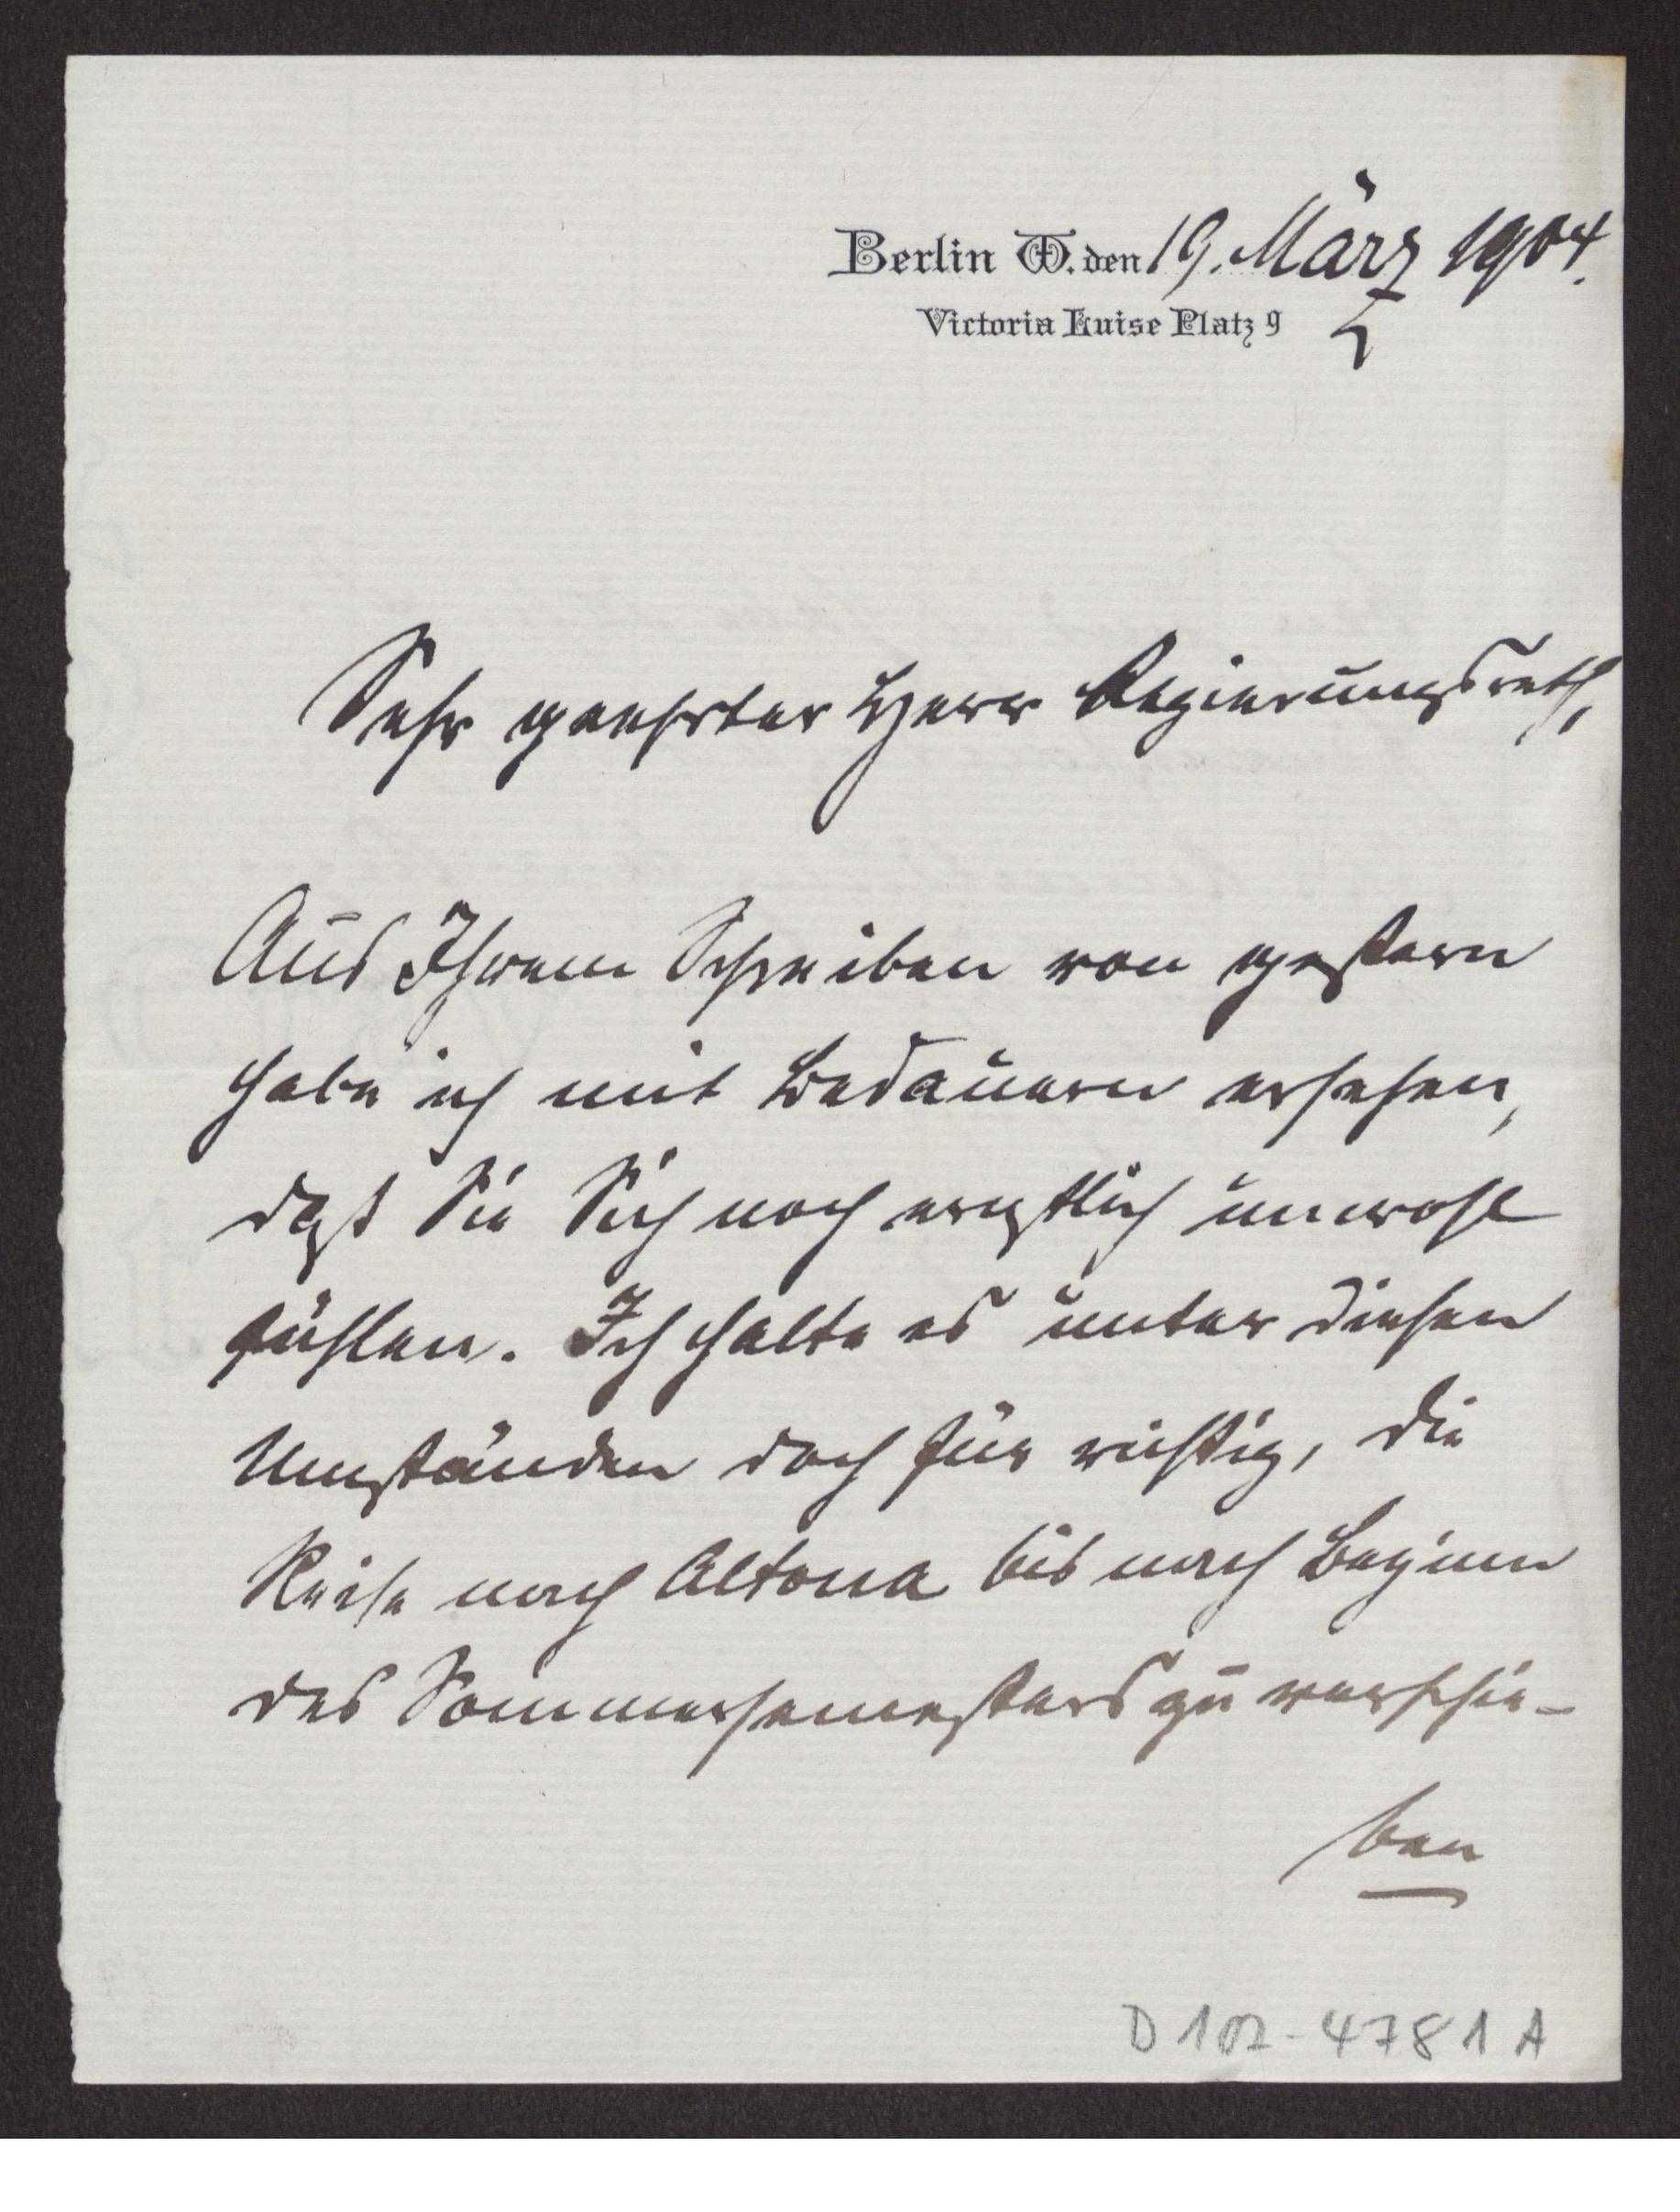 Berlin W. den 19. März 1904.
Victoria Luise Platz 9
Sehr geehrter Herr Regierungsrath,
Aus Ihrem Schreiben von gestern
habe ich mit Bedauern ersehen,
daß Sie Sich noch ernstlich unwohl
fühlen. Ich halte es unter diesen
Umständen doch für richtig, die
Reise nach Altona bis nach Beginn
des Sommersemesters zu verschie-
ben
D 102-4781 A